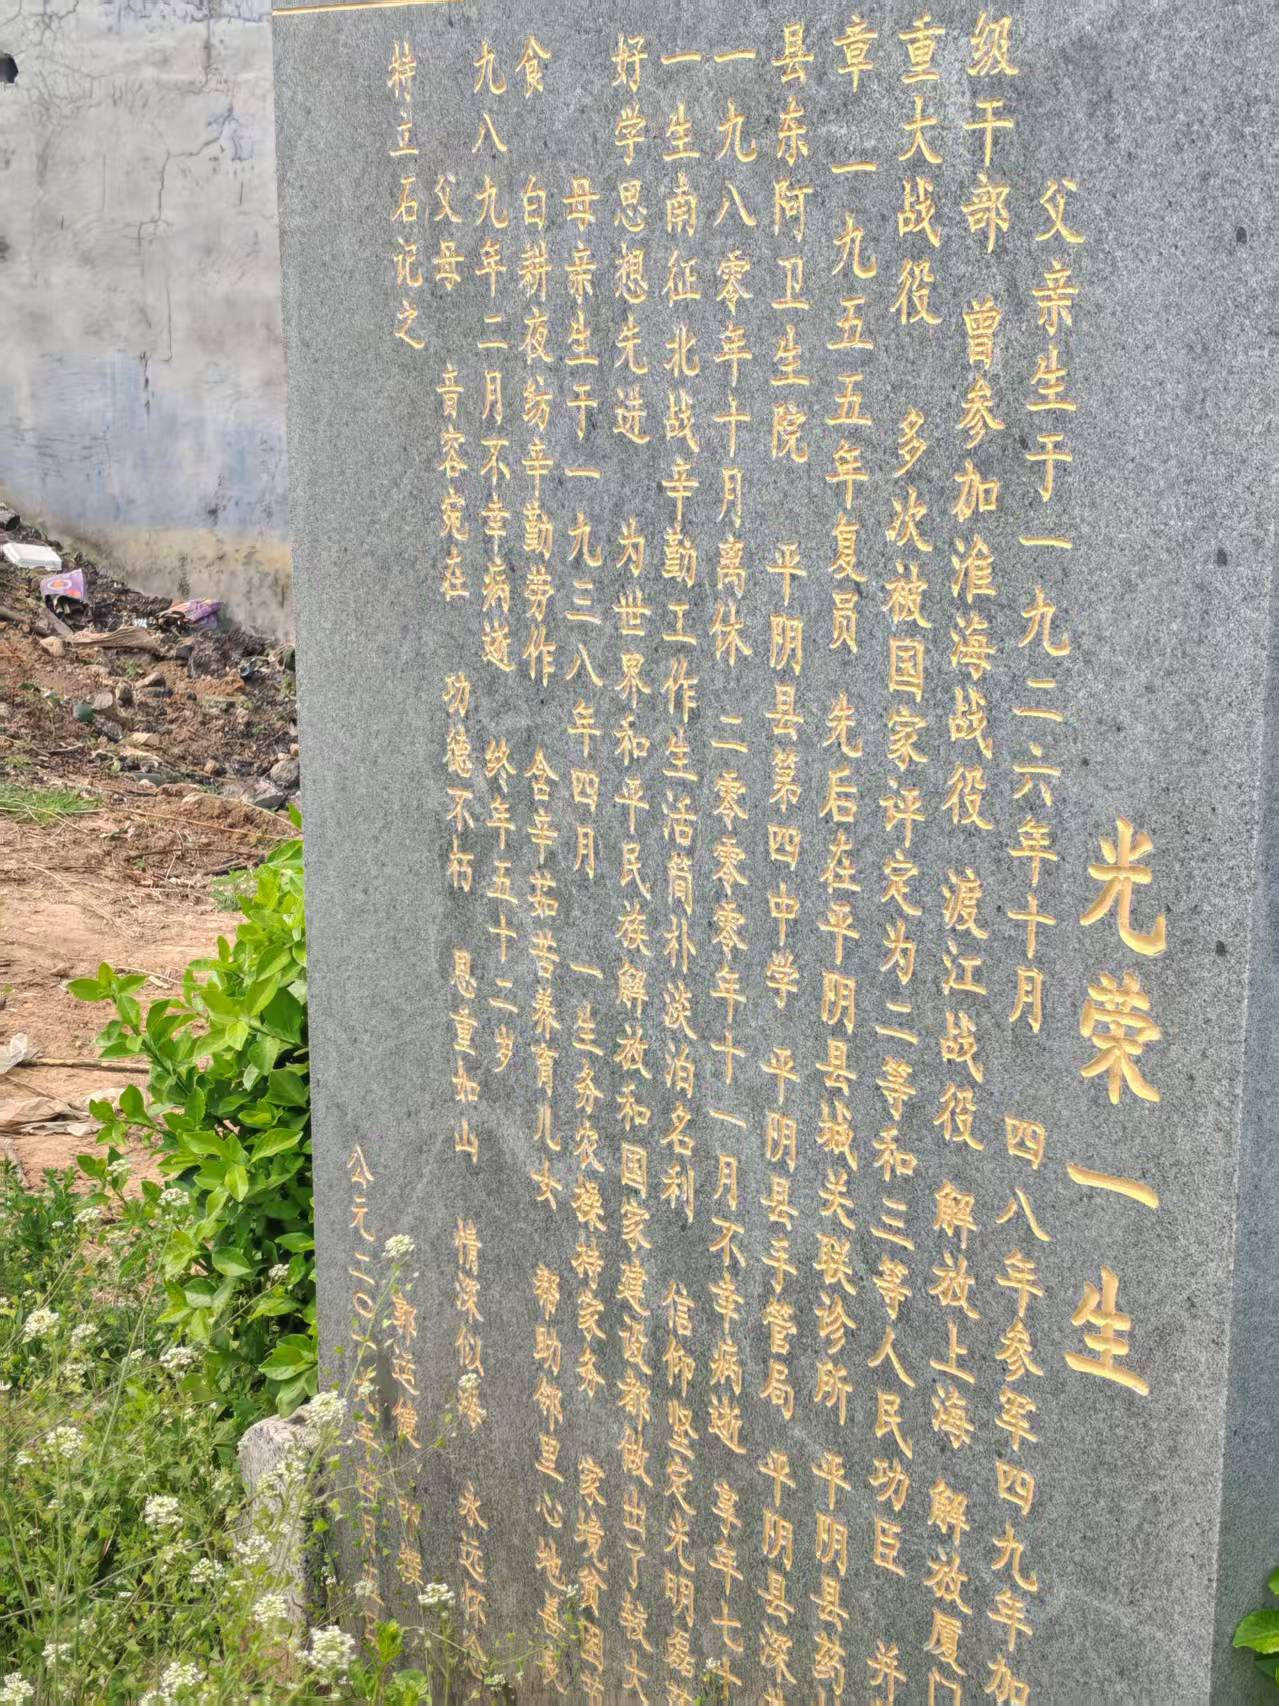 光荣一生
父亲生于一九二六年十月 四八年参军四九年加
级干部 曾参加淮海战役 渡江战役 解放上海 解放厦门
重大战役 多次被国家评定为二等和三等人民功臣 并
章 一九五五年复员 先后在平阴县城关联诊所 平阴县药
县东阿卫生院 平阴县第四中学 平阴县手管局 平阴县深
一九八零年十月离休 二零零零年十一月不幸病逝 享年七十
一生南征北战辛勤工作生活简朴淡泊名利 信仰坚定光明磊
好学思想先进 为世界和平民族解放和国家建设都做出了较大
母亲生于一九三八年四月 一生务农操持家务 家境贫困节
食 白耕夜纺辛勤劳作 含辛茹苦养育儿女 帮助邻里心地善良
九八九年二月不幸病逝 终年五十二岁
父母 音容宛在 功德不朽 恩重如山 情深似海 永远怀念
特立石记之
公元二〇一 年 月